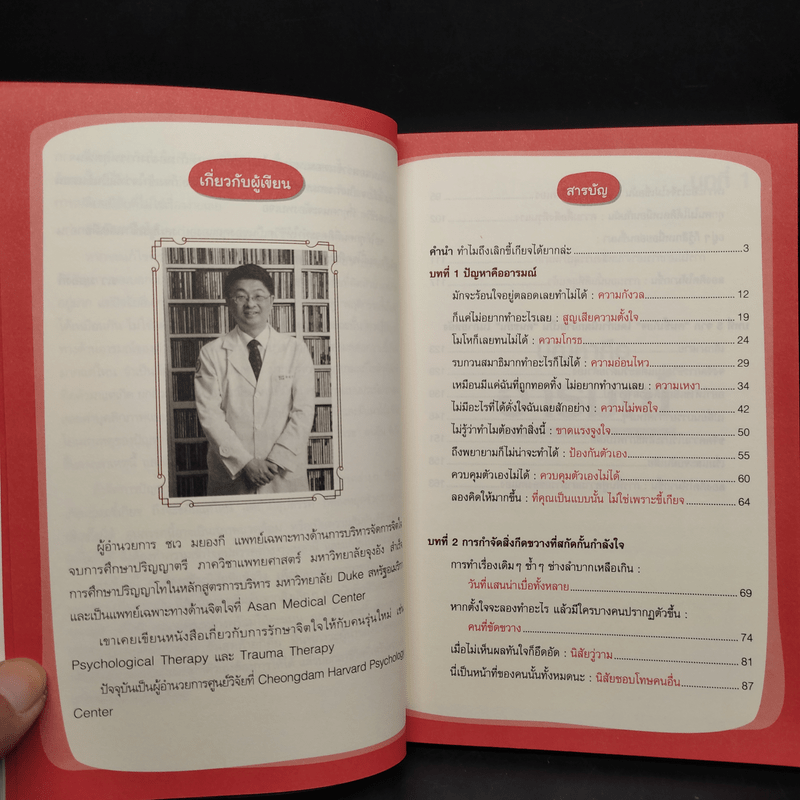 เกี่ยวกับผู้เขียน
ผู้อำนวยการ ชเว มยองกี แพทย์เฉพาะทางด้านการบริหารจัดการจิตใจ
จบการศึกษาปริญญาตรี ภาควิชาแพทยศาสตร์ มหาวิทยาลัยจุงอัง สำเร็จ
การศึกษาปริญญาโทในหลักสูตรการบริหาร มหาวิทยาลัย Duke สหรัฐอเมริกา
และเป็นแพทย์เฉพาะทางด้านจิตใจที่ Asan Medical Center
เขาเคยเขียนหนังสือเกี่ยวกับการรักษาจิตใจให้กับคนรุ่นใหม่ เช่น
Psychological Therapy และ Trauma Therapy
ปัจจุบันเป็นผู้อำนวยการศูนย์วิจัยที่ Cheongdam Harvard Psychology
Center
สารบัญ
คำนำ ทำไมถึงเลิกขี้เกียจได้ยากล่ะ 3
บทที่ 1 ปัญหาคืออารมณ์
มักจะร้อนใจอยู่ตลอดเลยทำไม่ได้ : ความกังวล 12
ก็แค่ไม่อยากทำอะไรเลย : สูญเสียความตั้งใจ 19
โมโหก็เลยทนไม่ได้ : ความโกรธ 24
รบกวนสมาธิมากทำอะไรก็ไม่ได้ : ความอ่อนไหว 29
เหมือนมีแค่ฉันที่ถูกทอดทิ้ง ไม่อยากทำงานเลย : ความเหงา 34
ไม่มีอะไรที่ได้ดั่งใจฉันเลยสักอย่าง : ความไม่พอใจ 42
ไม่รู้ว่าทำไมต้องทำสิ่งนี้ : ขาดแรงจูงใจ 50
ถึงพยายามก็ไม่น่าจะทำได้ : ป้องกันตัวเอง 55
ควบคุมตัวเองไม่ได้ : ควบคุมตัวเองไม่ได้ 60
ลองคิดให้มากขึ้น : ที่คุณเป็นแบบนั้น ไม่ใช่เพราะขี้เกียจ 64
บทที่ 2 การกำจัดสิ่งกีดขวางที่สกัดกั้นกำลังใจ
การทำเรื่องเดิมๆ ซ้ำๆ ช่างลำบากเหลือเกิน :
วันที่แสนน่าเบื่อทั้งหลาย 69
หากตั้งใจจะลองทำอะไร แล้วมีใครบางคนปรากฏตัวขึ้น :
คนที่ขัดขวาง 74
เมื่อไม่เห็นผลทันใจก็อึดอัด : นิสัยวู่วาม 81
นี่เป็นหน้าที่ของคนนั้นทั้งหมดนะ : นิสัยชอบโทษคนอื่น 87